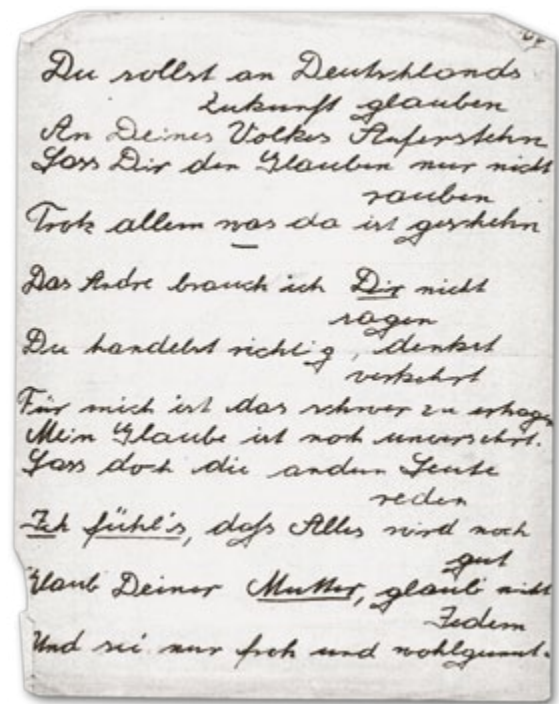 Du sollst an Deutschlands
Zukunft glauben
An Deines Volkes Auferstehn
Lass Dir den Glauben nur nicht
rauben
Trotz allem was da ist geschehn
Das Andre brauch ich Dir nicht
sagen
Du handelst richtig, denkst
verkehrt
Für mich ist das schwer zu ertragen
Mein Glaube ist noch unversehrt.
Lass doch die andern Leute
reden
Ich fühl's, daß Alles wird noch
gut
Glaub Deiner Mutter, glaub nicht
Jedem
Und sei nur froh und wohlgemut.